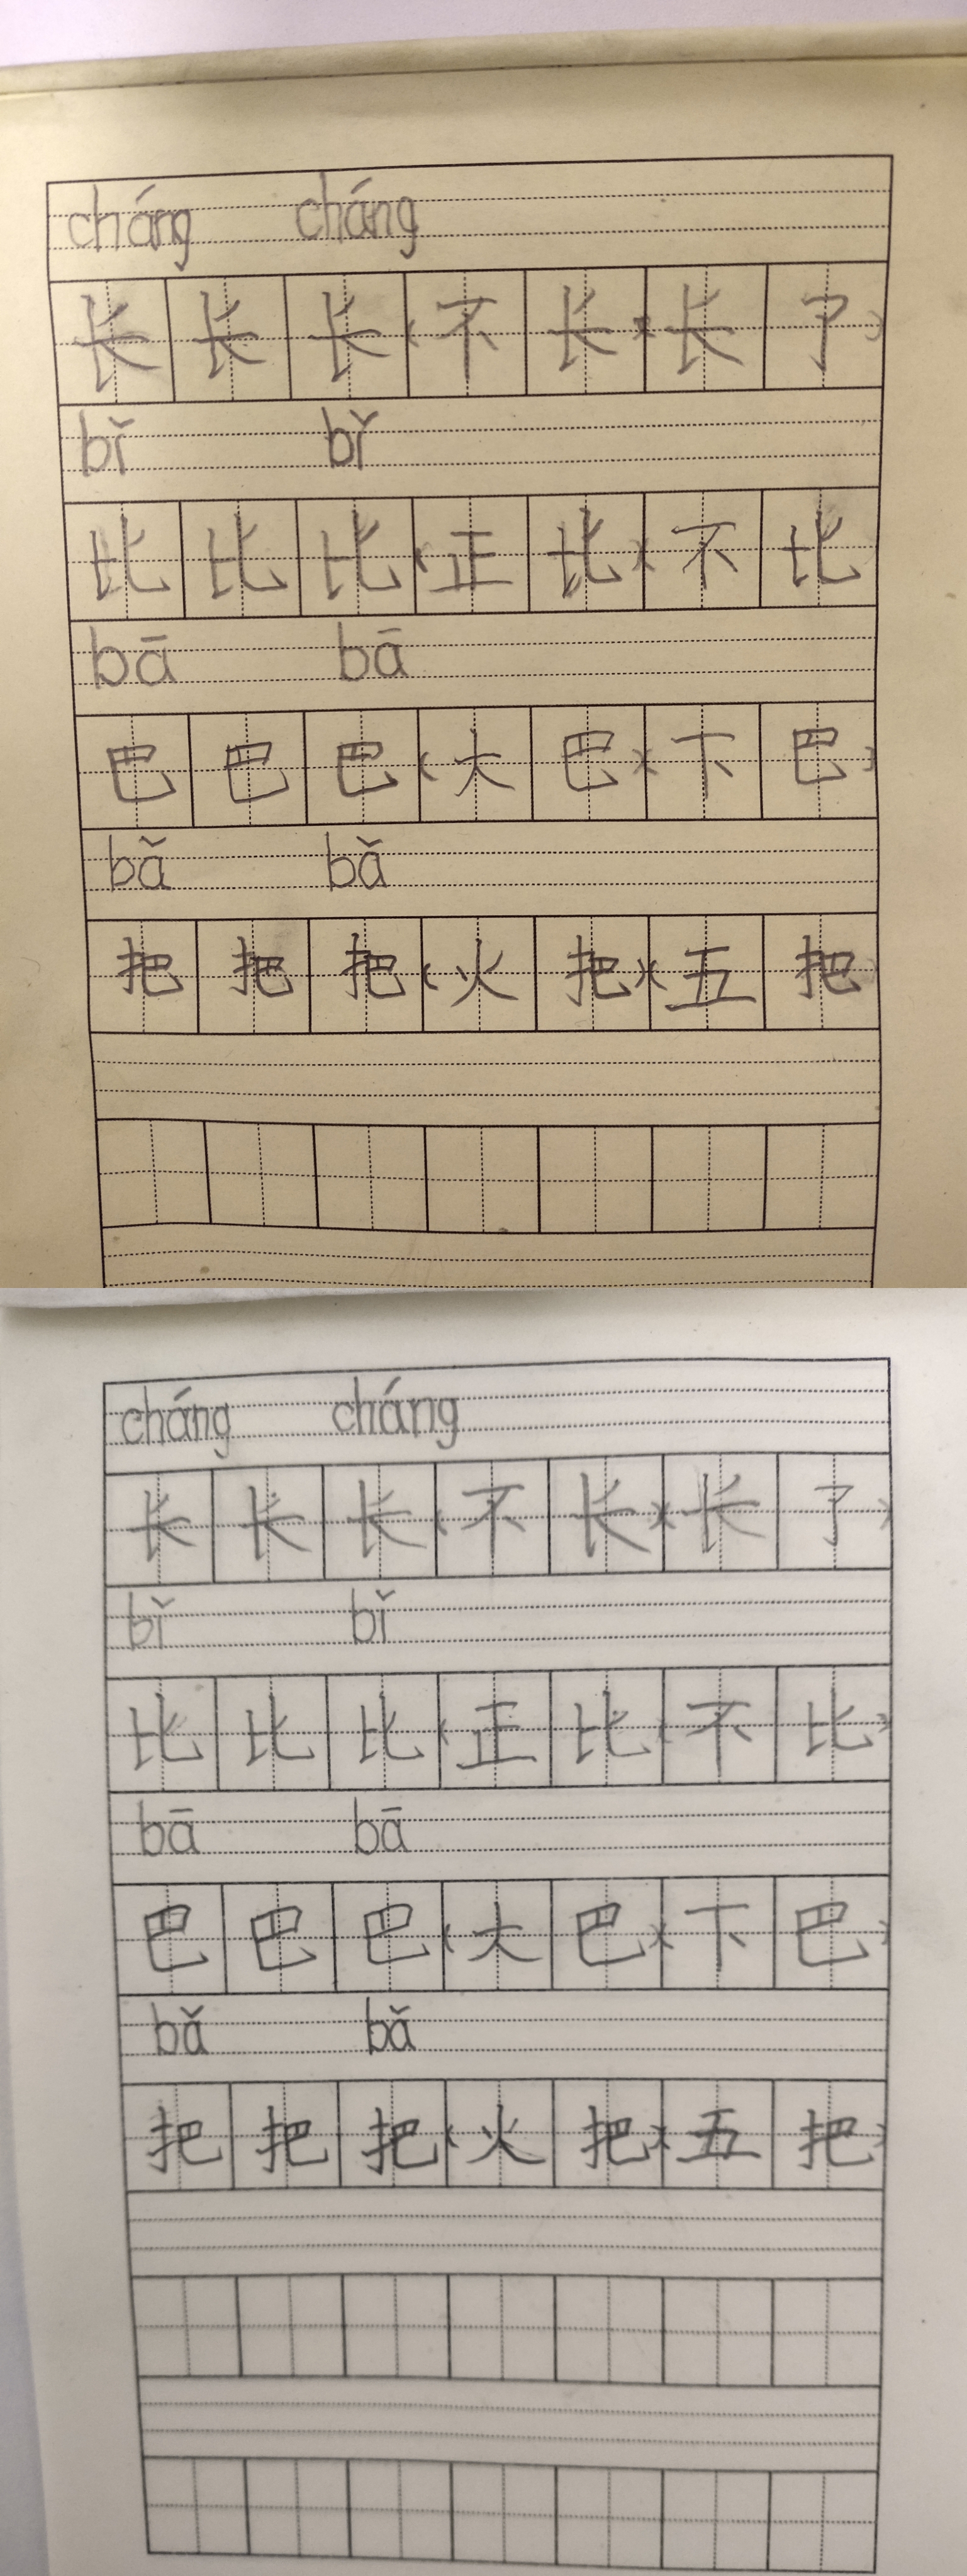 cháng cháng
长长长(不长)(长了)
bǐ bǐ
比比比(正比)(不比
bā bā
巴巴巴(大巴)(下巴)
bǎ bǎ
把把把(火把)(五把)
cháng cháng
长长长(不长)(长了)
bǐ bǐ
比比比(正比)(不比)
bā bā
巴巴巴(大巴)(下巴)
bǎ bǎ
把把把(火把)(五把)